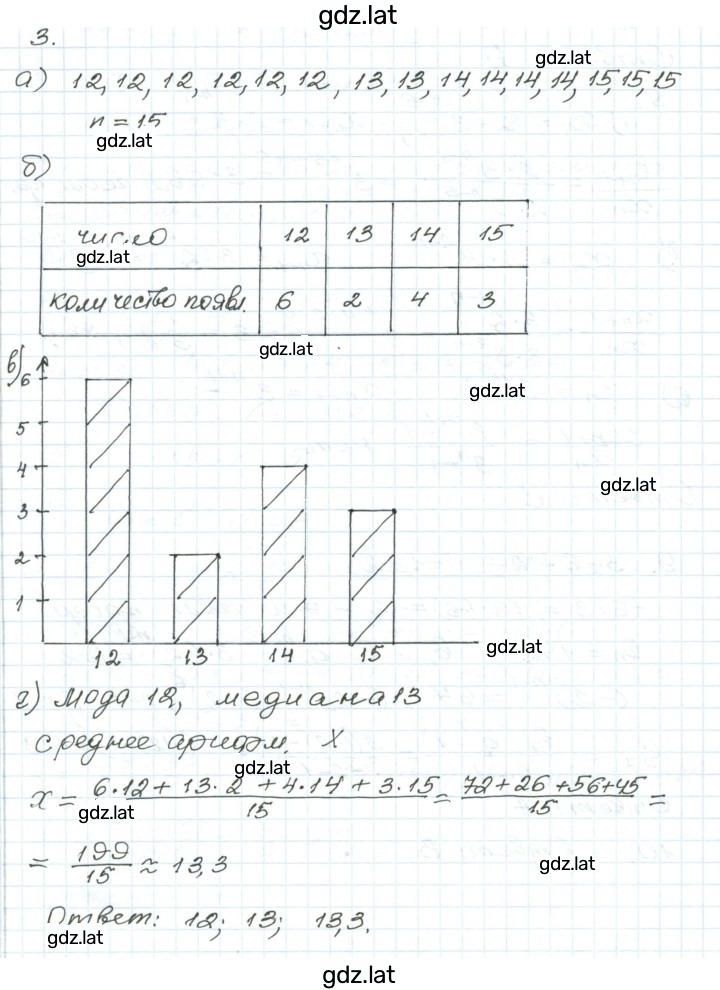 gdz.lat
3.
gdz.lat
а) 12, 12, 12, 12, 12, 12, 13, 13, 14, 14, 14, 14, 15, 15, 15
n = 15
gdz.lat
б)
число 12 13 14 15
gdz.lat
количество появл. 6 2 4 3
gdz.lat
в)
6
gdz.lat
5
4
gdz.lat
3
2
1
gdz.lat
12 13 14 15
г) Мода 12, медиана 13
среднее арифм. X
gdz.lat
x = (6·12 + 13·2 + 4·14 + 3·15)/15 = (72+26+56+45)/15 =
gdz.lat
= 199/15 ≈ 13,3
gdz.lat
Ответ: 12; 13; 13,3.
gdz.lat
gdz.lat